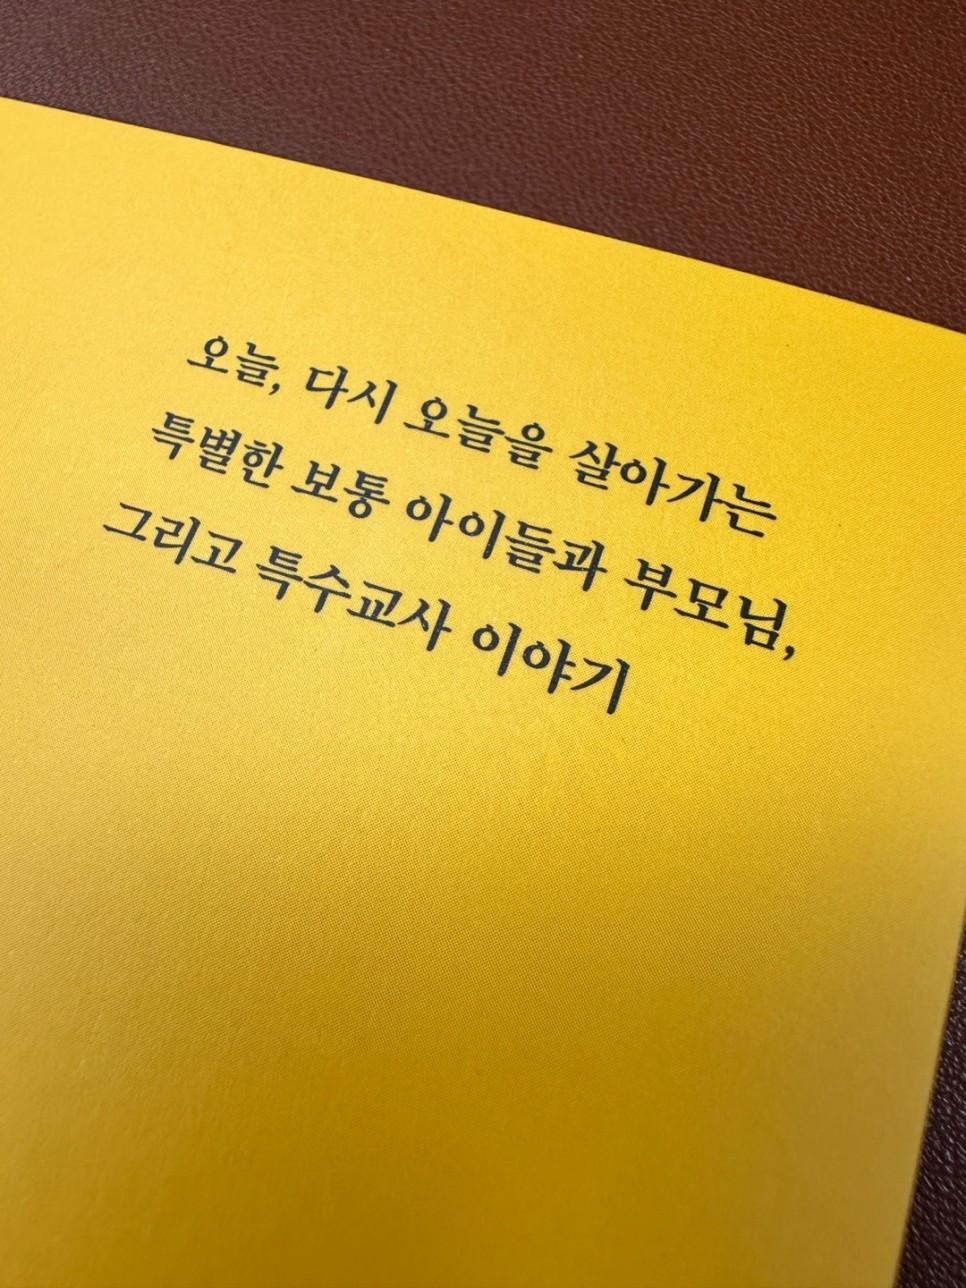 오늘, 다시 오늘을 살아가는
특별한 보통 아이들과 부모님,
그리고 특수교사 이야기